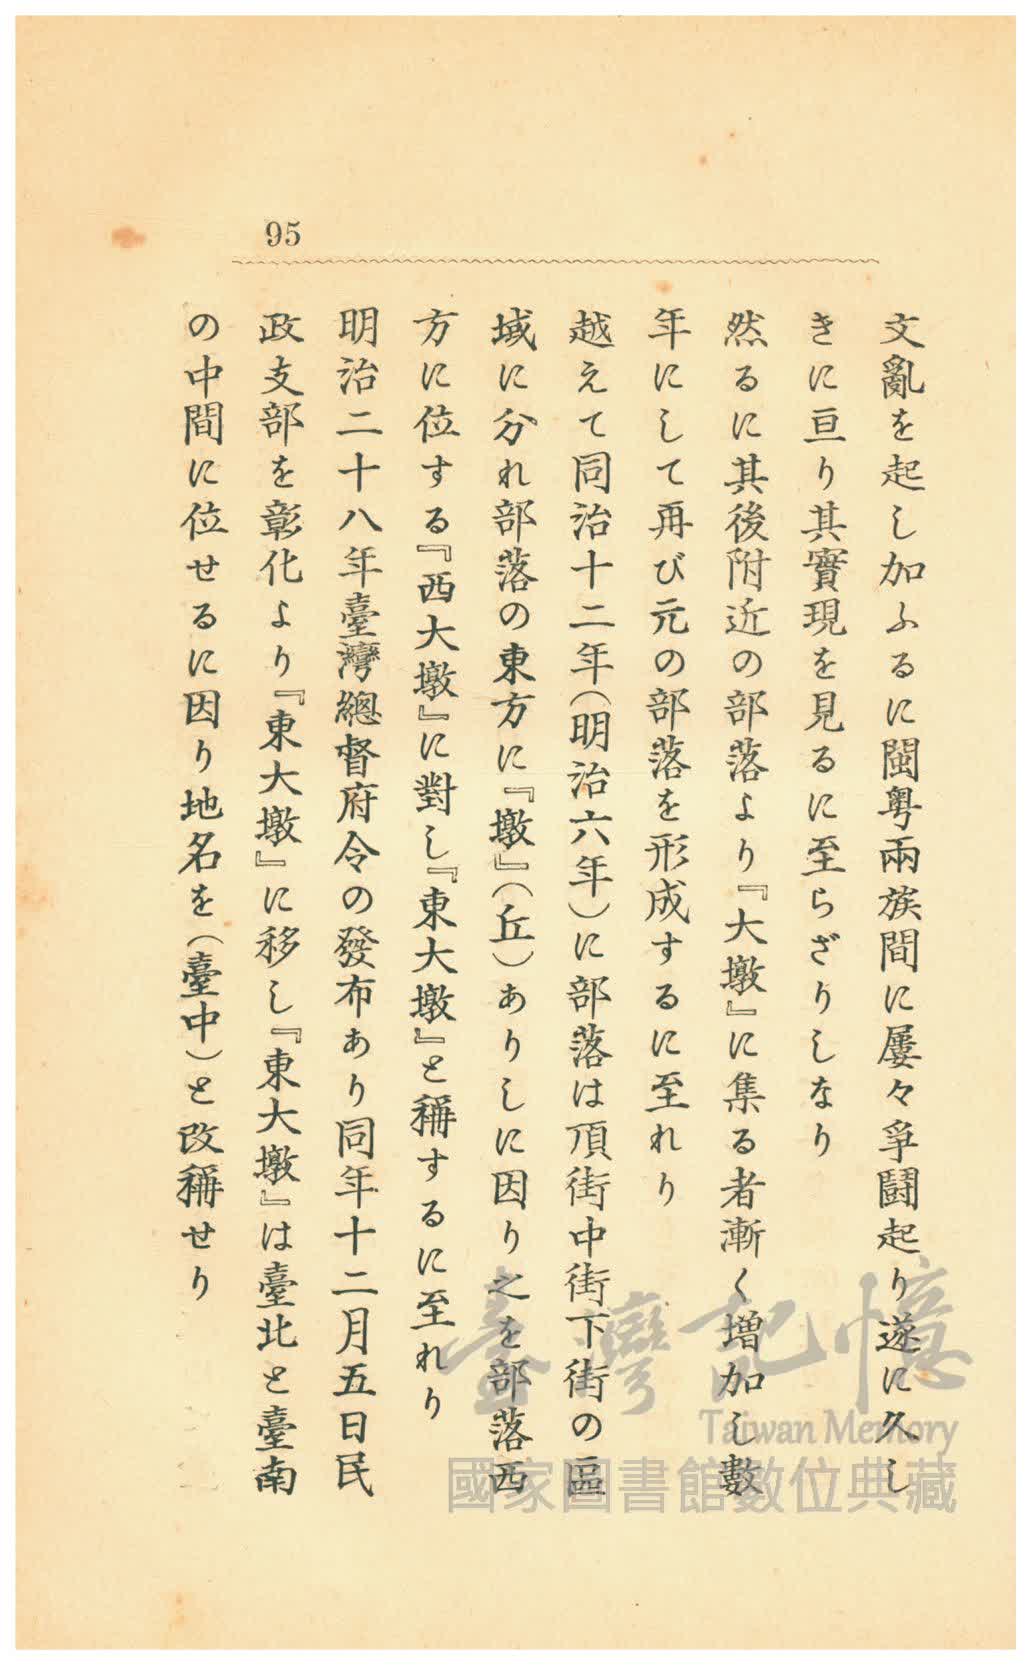 95
文亂を起し加ふるに閩粤兩族間に屢々爭鬪起り遂に久し
きに亘り其實現を見るに至らざりしなり
然るに其後附近の部落より『大墩』に集る者漸く增加し數
年にして再び元の部落を形成するに至れり
越えて同治十二年(明治六年)に部落は頂街中街下街の區
域に分れ部落の東方に『墩』(丘)ありしに因り之を部落西
方に位する『西大墩』に對し『東大墩』と稱するに至れり
明治二十八年臺灣總督府令の發布あり同年十二月五日民
政支部を彰化より『東大墩』に移し『東大墩』は臺北と臺南
の中間に位せるに因り地名を(臺中)と改稱せり
臺灣記憶
Taiwan Memory
國家圖書館數位典藏